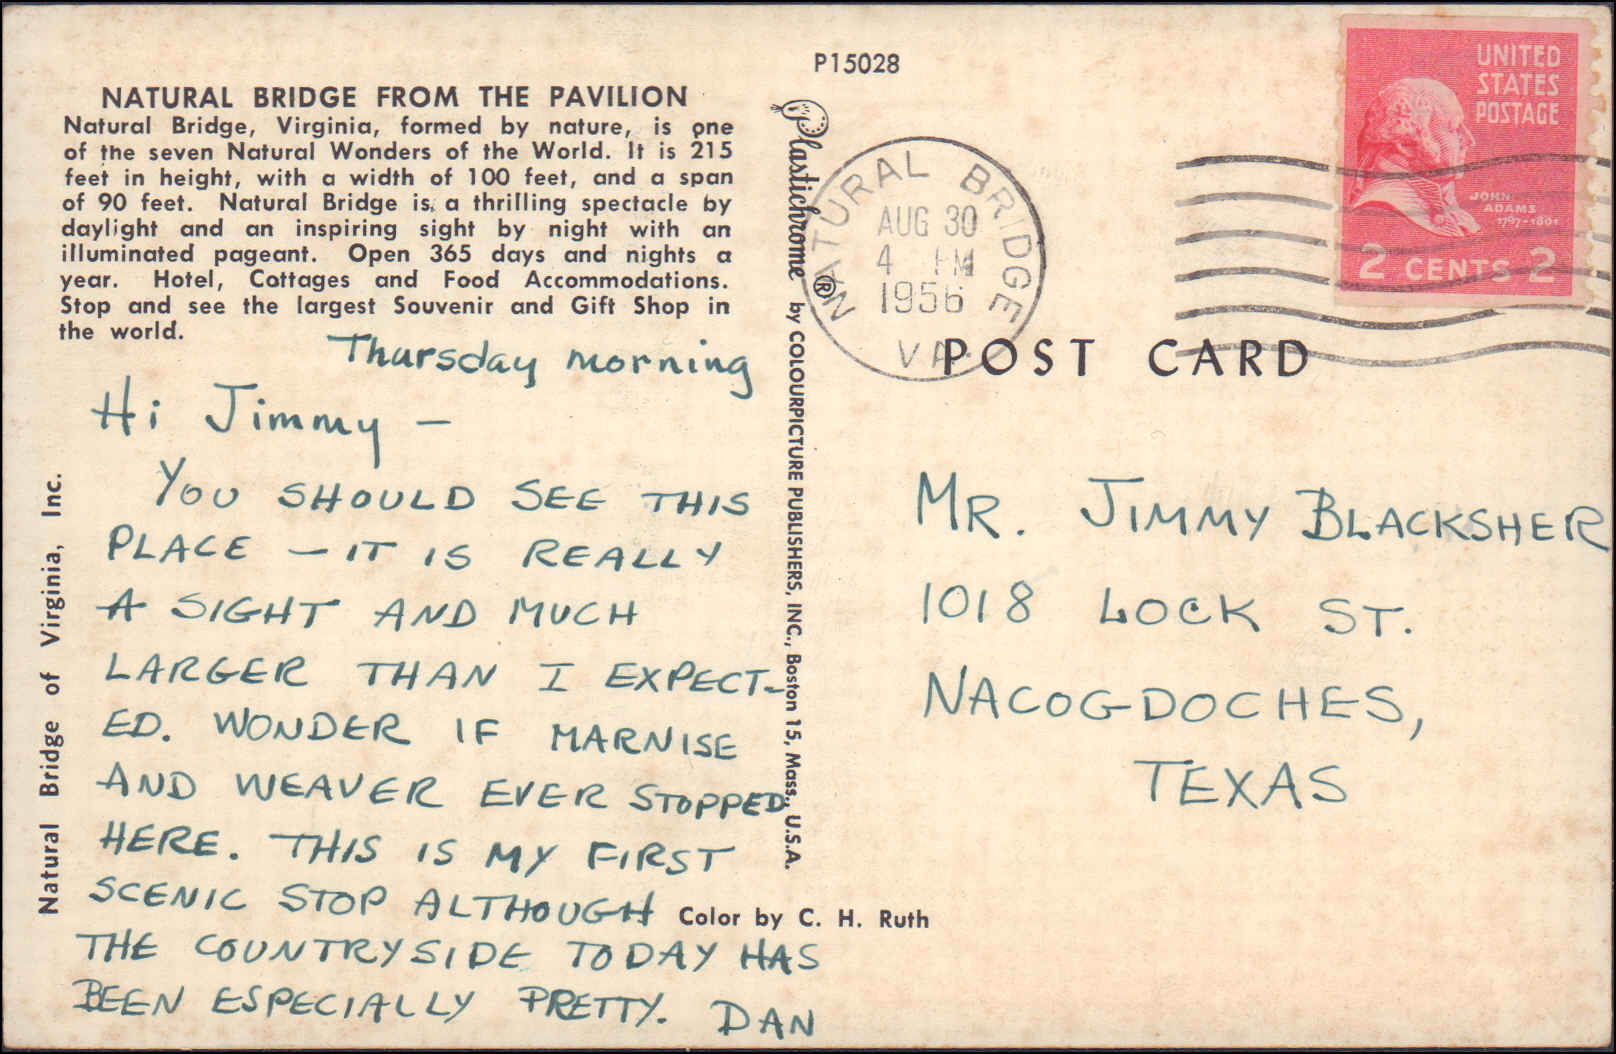 P15028
NATURAL BRIDGE FROM THE PAVILION
Natural Bridge, Virginia, formed by nature, is one
of the seven Natural Wonders of the World. It is 215
feet in height, with a width of 100 feet, and a span
of 90 feet. Natural Bridge is a thrilling spectacle by
daylight and an inspiring sight by night with an
illuminated pageant. Open 365 days and nights a
year. Hotel, Cottages and Food Accommodations.
Stop and see the largest Souvenir and Gift Shop in
the world.
Thursday morning
Hi Jimmy —
YOU SHOULD SEE THIS
PLACE — IT IS REALLY
A SIGHT AND MUCH
LARGER THAN I EXPECT-
ED. WONDER IF MARNISE
AND WEAVER EVER STOPPED
HERE. THIS IS MY FIRST
SCENIC STOP ALTHOUGH
THE COUNTRYSIDE TODAY HAS
BEEN ESPECIALLY PRETTY. DAN
Natural Bridge of Virginia, Inc.
Plastichrome ® by COLOURPICTURE PUBLISHERS, INC., Boston 15, Mass., U.S.A.
Color by C. H. Ruth
NATURAL BRIDGE
AUG 30
4 PM
1956
VA.
UNITED
STATES
POSTAGE
JOHN
ADAMS
1797-1801
2 CENTS 2
POST CARD
MR. JIMMY BLACKSHER
1018 LOCK ST.
NACOGDOCHES,
TEXAS